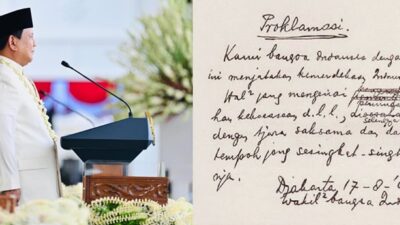 Proklamasi.
Kami bangsa Indonesia denga
ini menjatakan kemerdekaan Indon
Hal² jang mengenai
han kekoeasaan d.l.l.,
dengan tjara saksama dan da
tempoh jang sesingkat-singk
nja.
Djakarta 17-8-'
Wakil² bangsa Ind